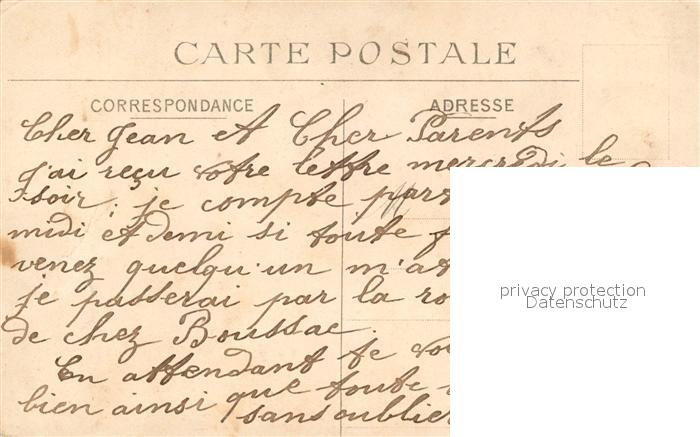 CARTE POSTALE
CORRESPONDANCE
ADRESSE
Cher Jean et Cher Parents
J'ai reçu votre lettre mercredi le
soir; je compte
midi et demi si toute
venez quelqu'un
je passerai par la
de chez Boussac.
En attendant te
bien ainsi que toute
sans oublier
privacy protection
Datenschutz